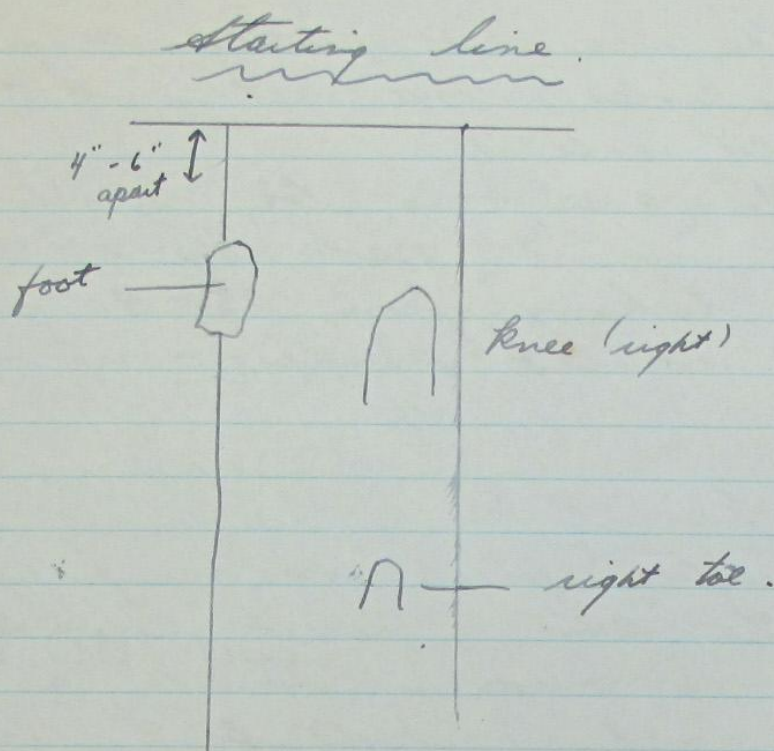 Starting line.
4" - 6"
apart
foot
knee (right)
right toe.